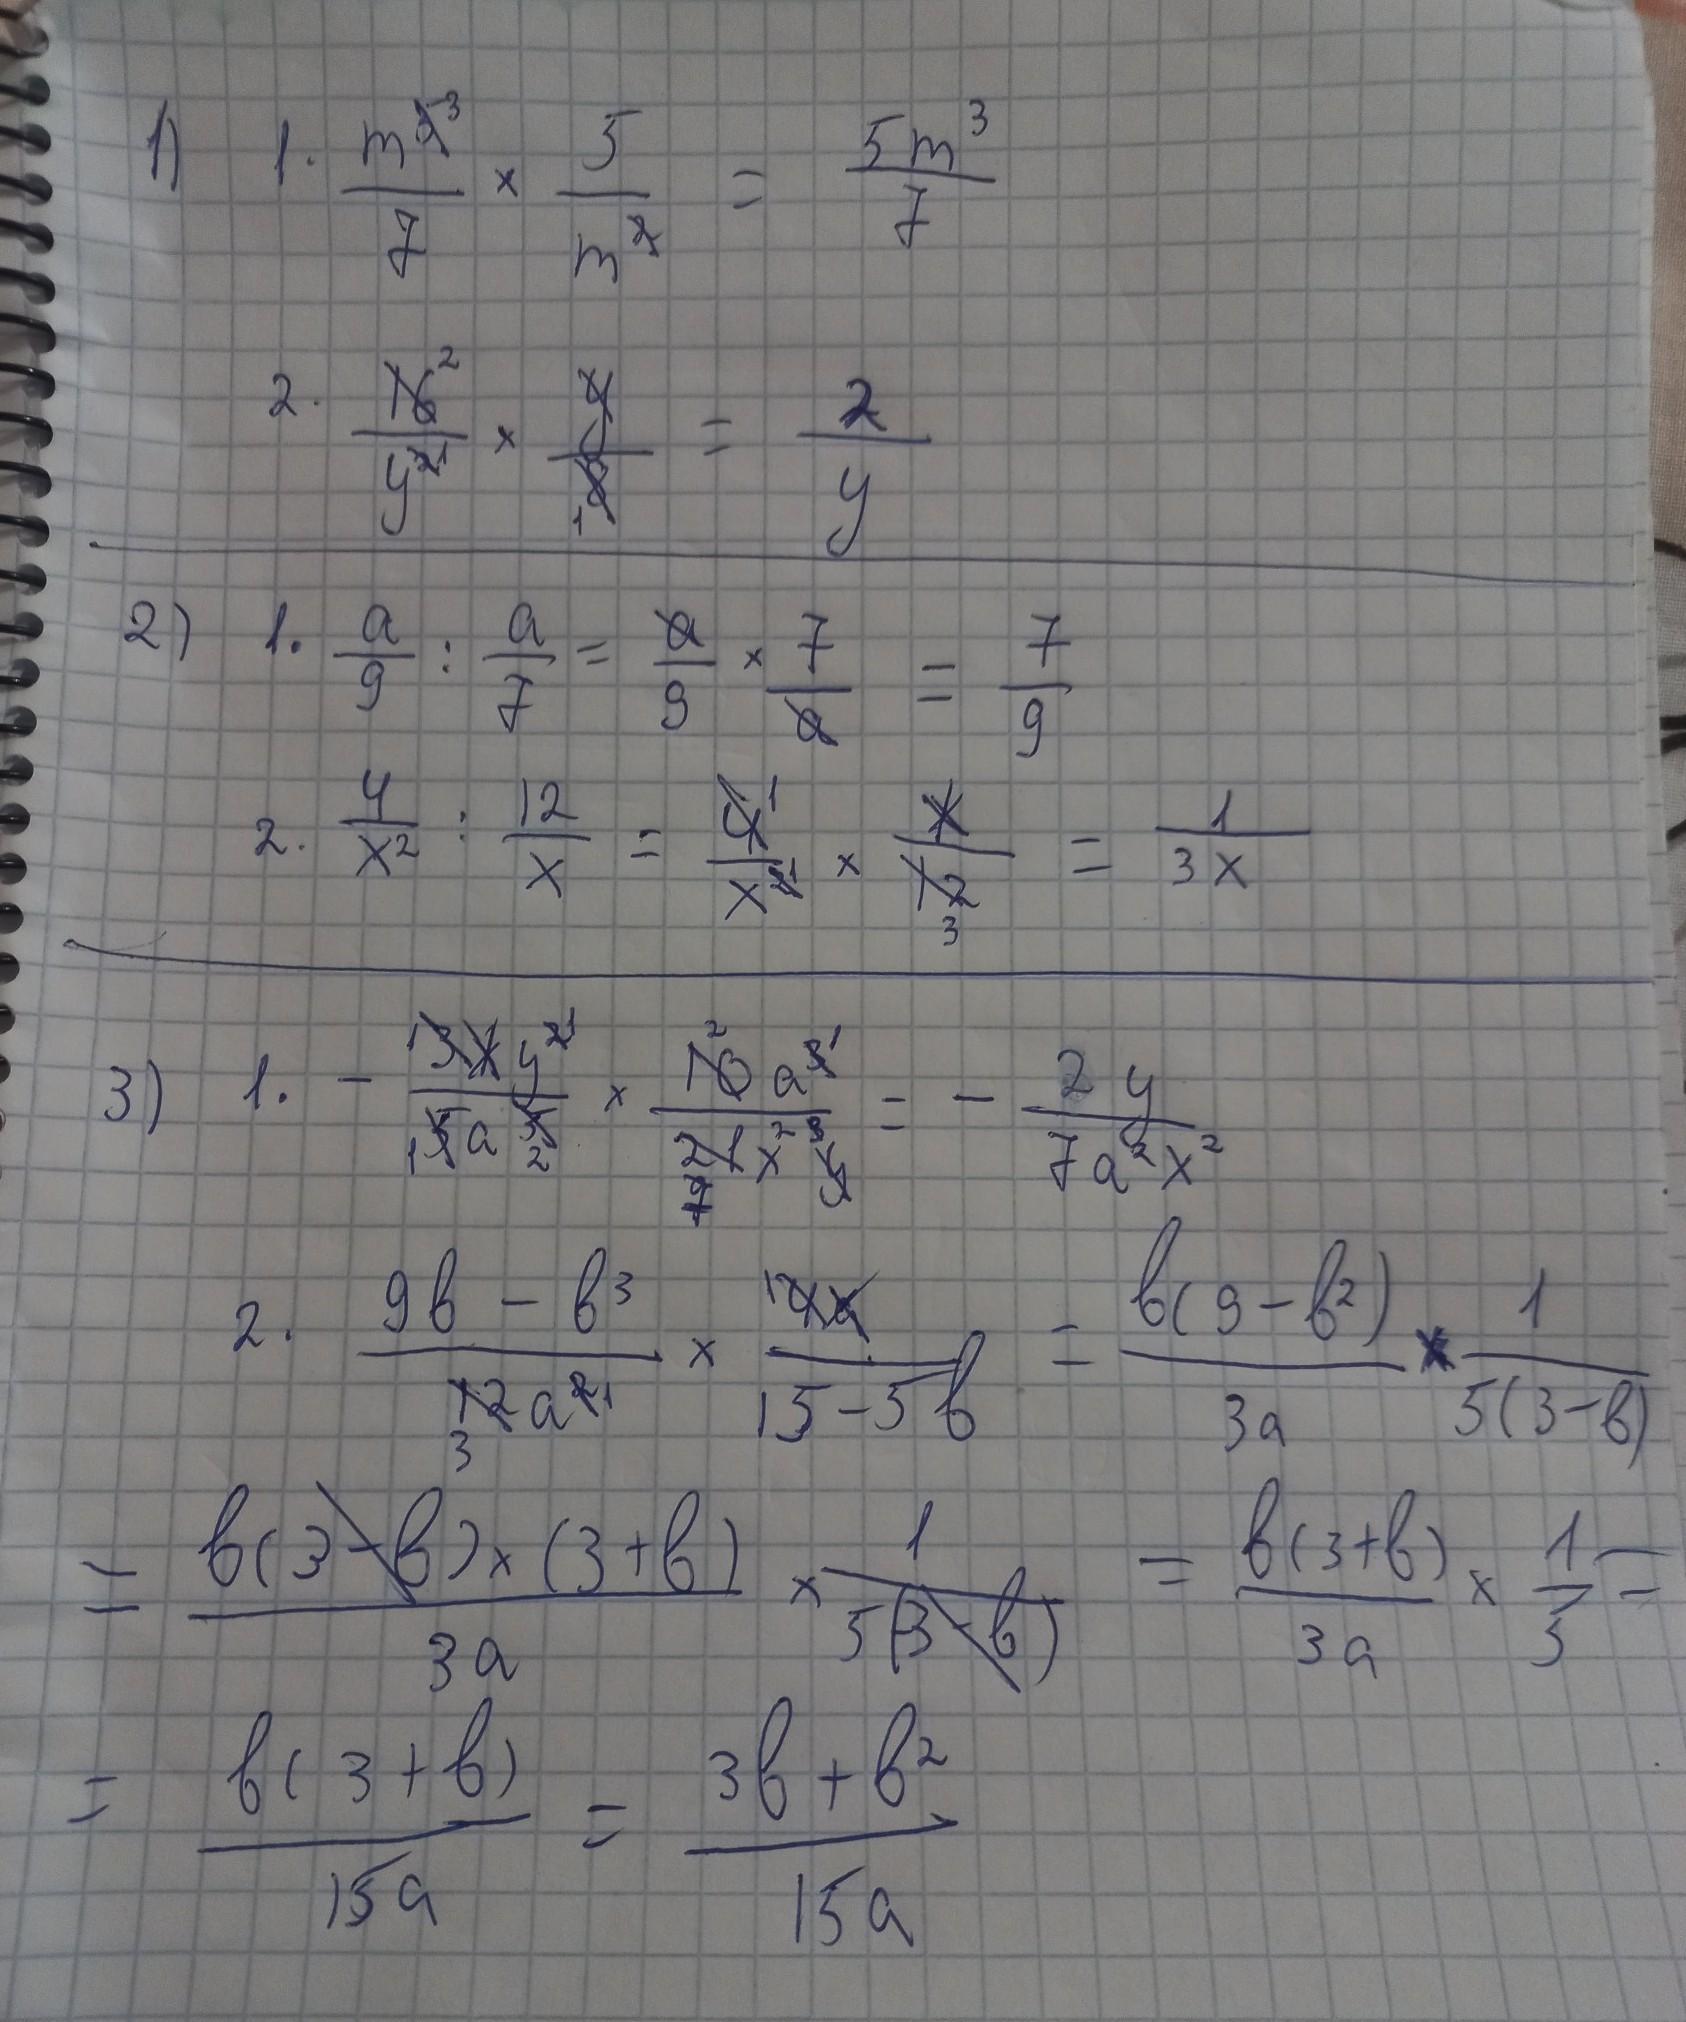 1) 1. m^5^3/7 × 5/m^2 = 5m^3/7
2. 16^2/y^2^1 × y/18 = 2/y
2) 1. a/9 : a/7 = a/9 × 7/a = 7/9
2. 4/x^2 : 12/x = 4^1/x^2^1 × x/12 3 = 1/3x
3) 1. - 1 3xy^2^1/1 5a^5 2 × 10^2 a^3^1/21 7 x^2 y = - 2y/7a^2x^2
2. 9b - b^3/12 3 a^2^1 × 1 4a/15-5b = b(9-b^2)/3a × 1/5(3-b)
= b(3-b)×(3+b)/3a × 1/5(3-b) = b(3+b)/3a × 1/5 =
= b(3+b)/15a = 3b+b^2/15a